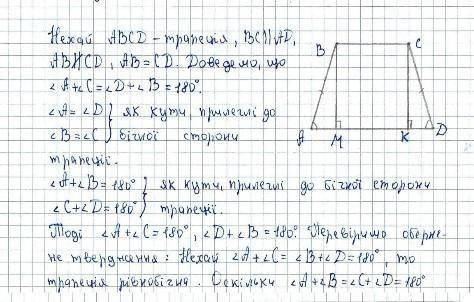 Нехай ABCD – трапеція, BC || AD,
AB∦CD, AB = CD. Доведемо, що
∠A+∠C=∠D+∠B=180°.
∠A=∠D } як кути, прилеглі до
∠B=∠C } бічної сторони
трапеції.
∠A+∠B=180° } як кути, прилеглі до бічної сторони
∠C+∠D=180° } трапеції.
Тоді ∠A+∠C=180°, ∠D+∠B=180°. Перевіримо оберне-
не твердження: Нехай ∠A+∠C=∠B+∠D=180°, то
трапеція рівнобічна. Оскільки ∠A+∠B=∠C+∠D=180°
B
C
A
M
K
D